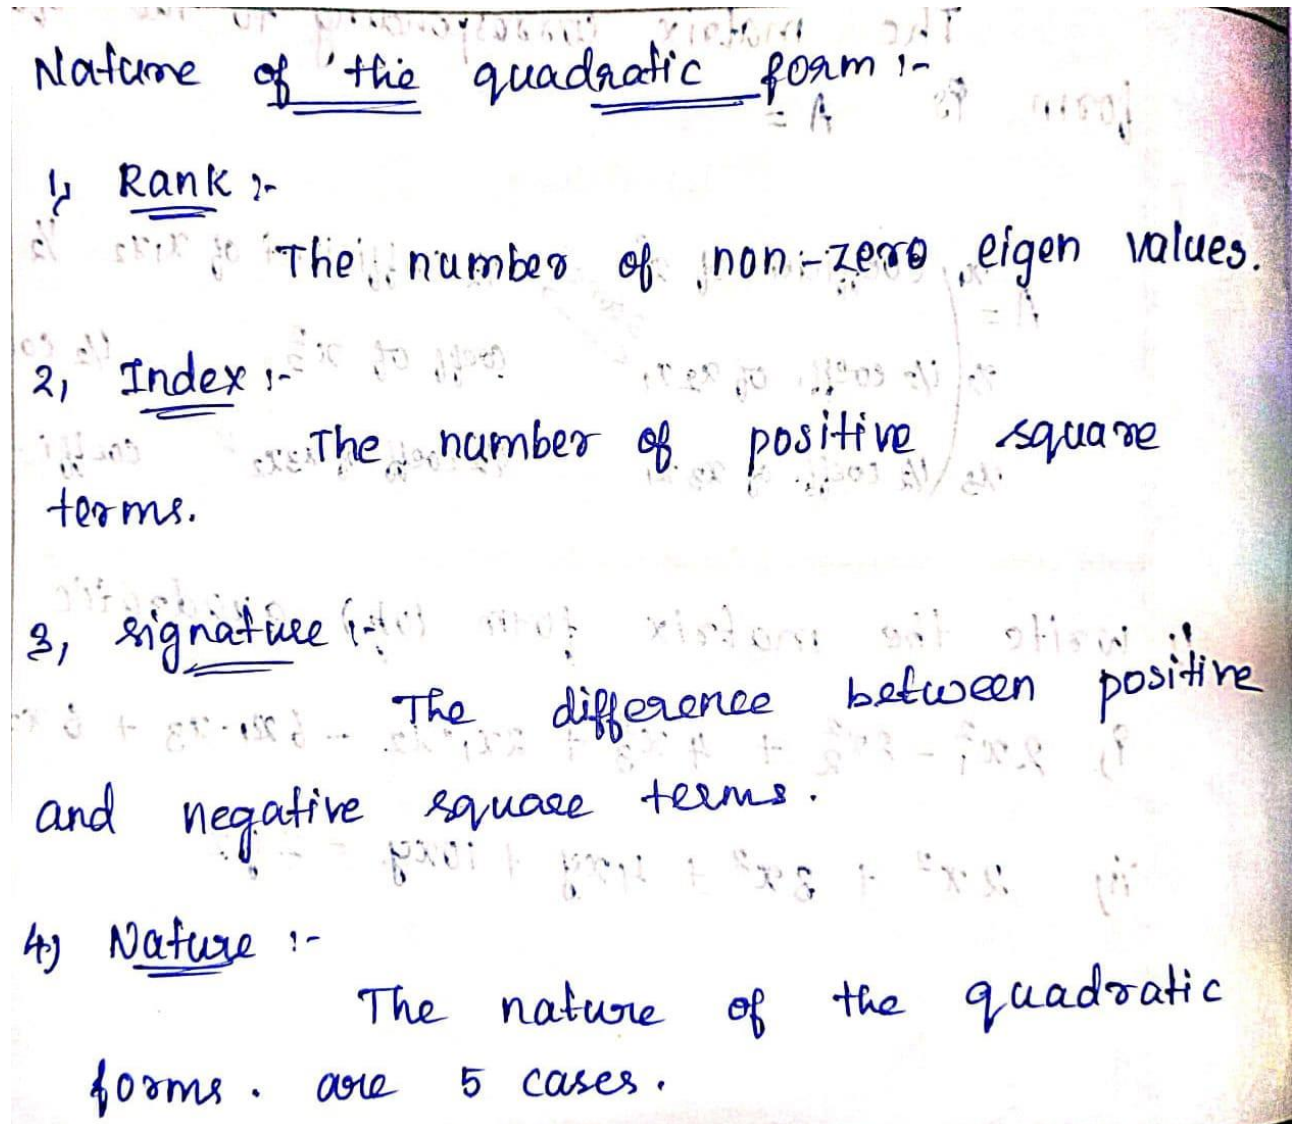 Nature of the quadratic form :-
1) Rank :-
The number of non-zero eigen values.
2, Index :-
The number of positive square
terms.
3, signature :-
The difference between positive
and negative square terms.
4) Nature :-
The nature of the quadratic
forms. are 5 cases.